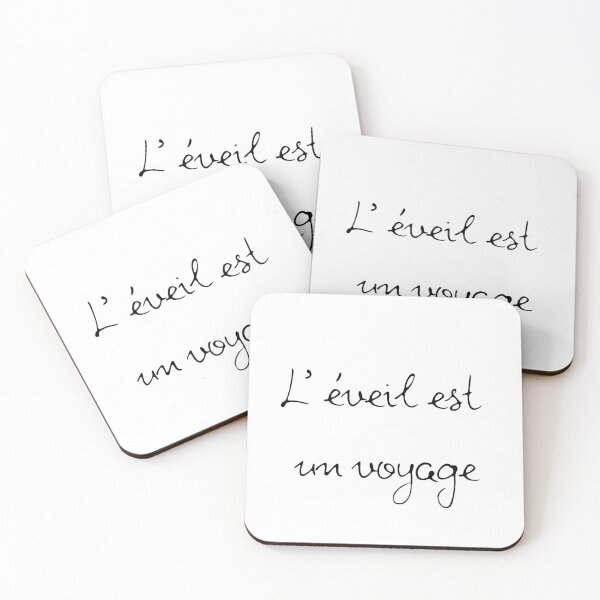 L' éveil est
L' éveil est
un voyage
L' éveil est
un
L' éveil est
un voyage